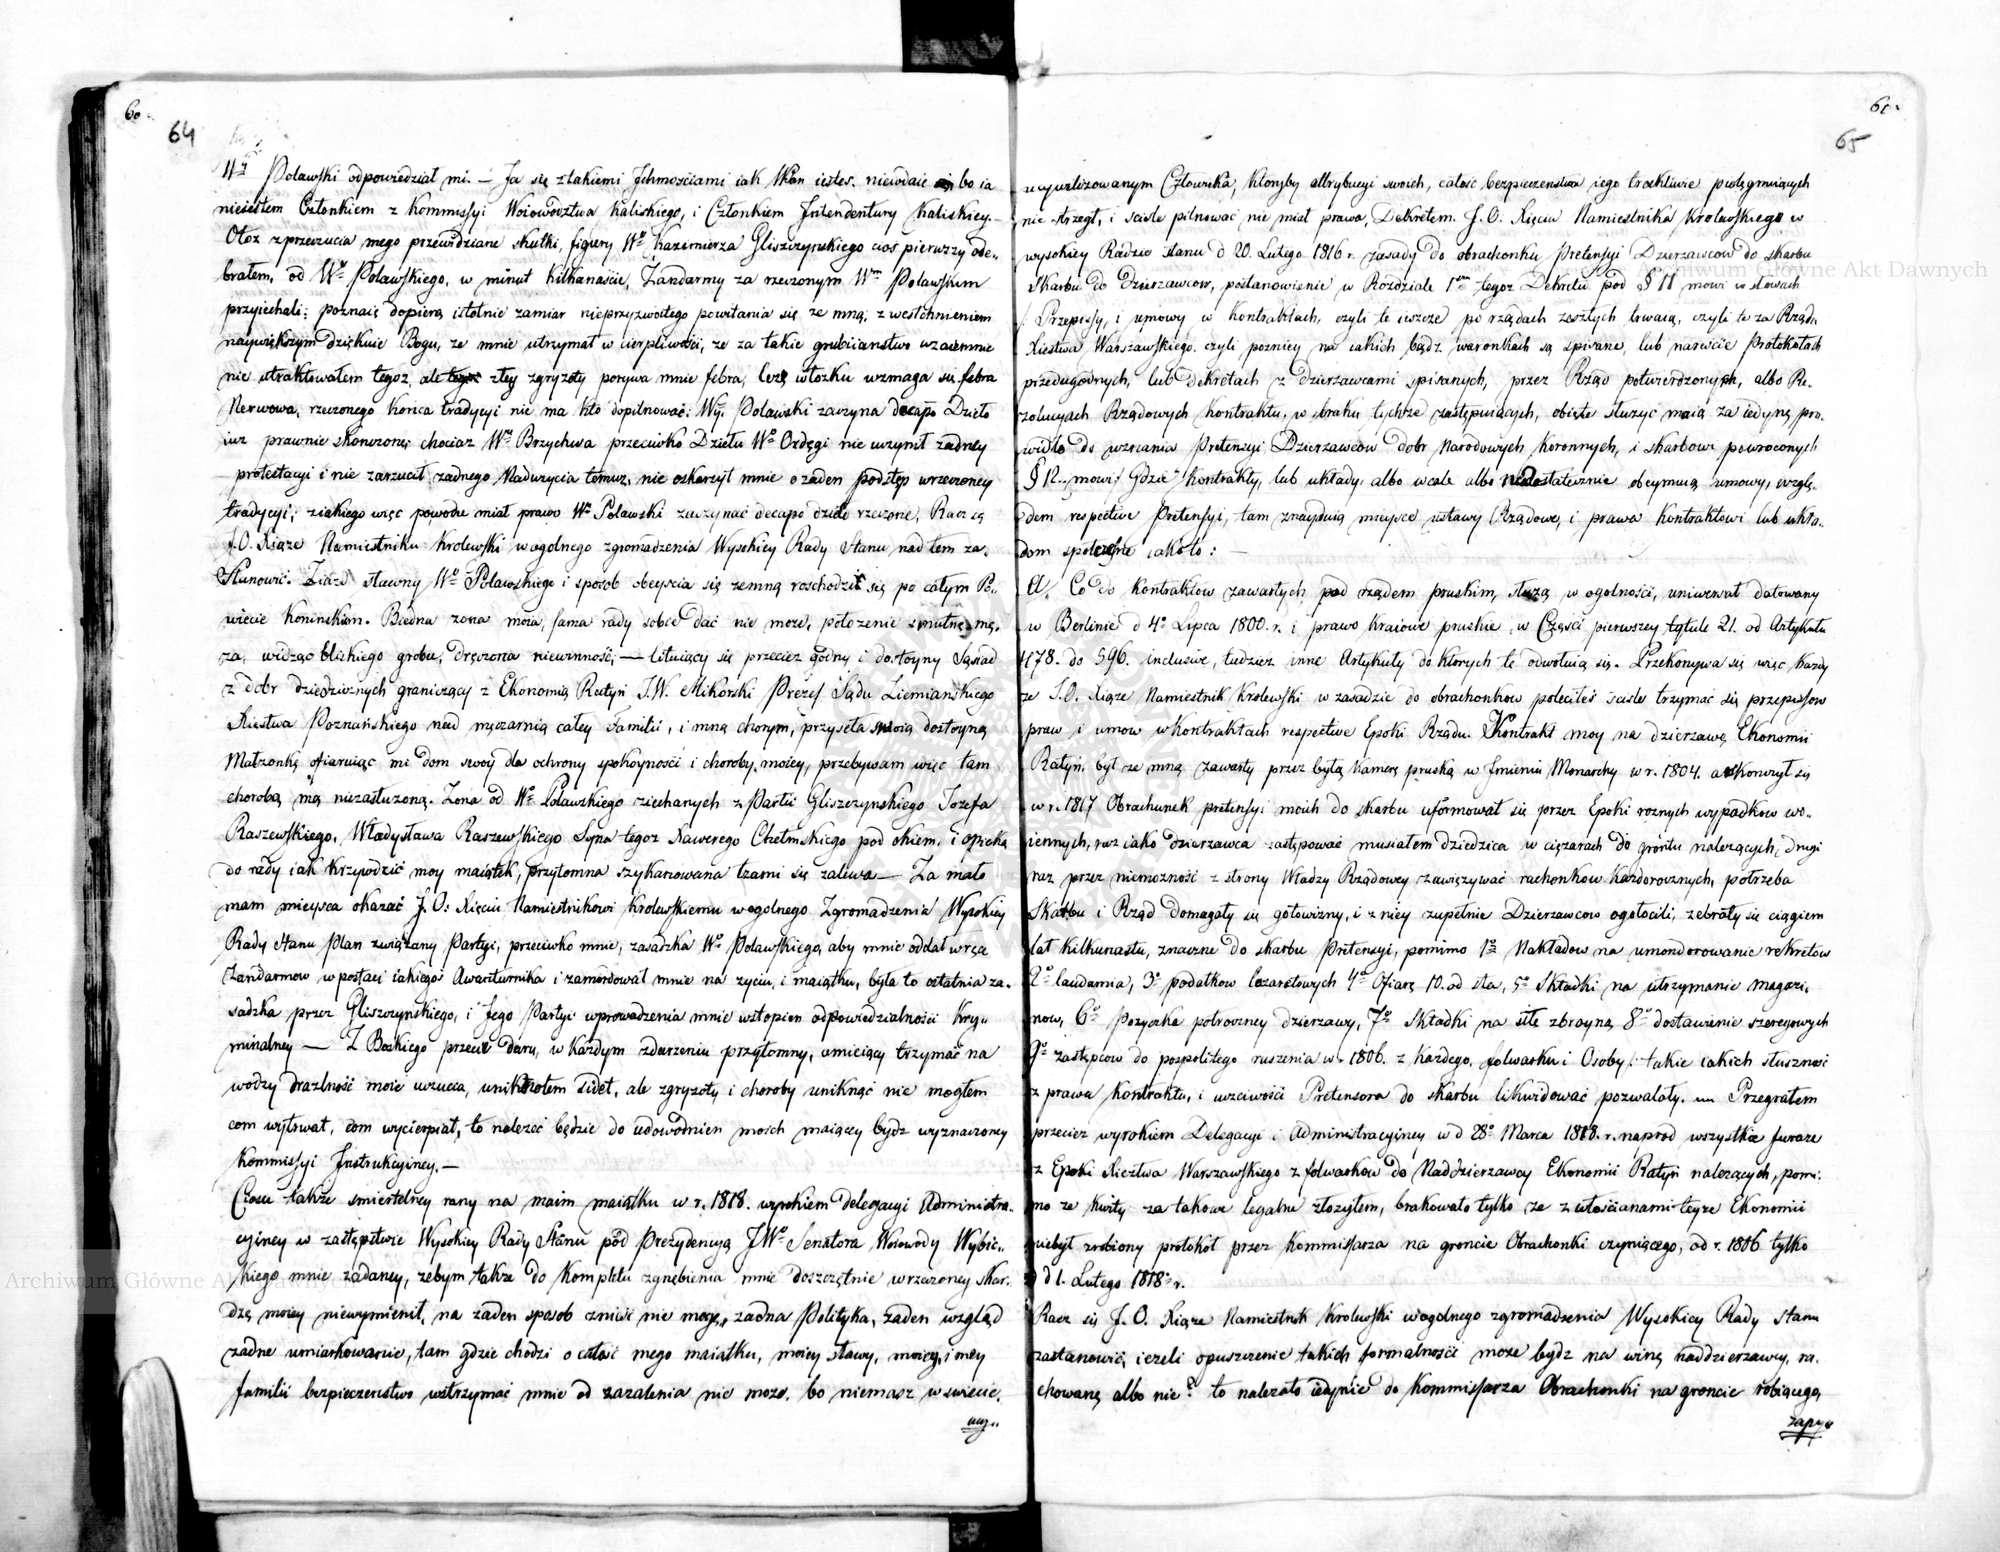 60.
64
Wy Polawski odpowiedział mi. — Ja się z takiemi Jchmościami iak WPan iesteś. niewdaie bo ia
nieiestem Członkiem z Kommissyi Woiewodztwa Kaliskiego, i Członkiem Intendentury Kaliskiey. —
Otoz z przeczucia mego przewidziane skutki, figury Wo Kazimierza Gliszczynskiego cios pierwszy ode„
brałem, od Wo Polawskiego, w minut kilkanaście, Zandarmy za rzeczonym Wm Polawskim
przyiechali; poznaię dopiero istotnie zamiar nieprzyzwoitego powitania się ze mną; z westchnieniem
naywiększym dziękuie Bogu, ze mnie utrzymał w cierpliwości, ze za takie grubiiaństwo wzaiemnie
nie utraktowałem tegoz, ale złey zgryzoty porywa mnie febra, lezę w łozku wzmaga się febra
Nerwowa, rzeczonego końca tradycyi nie ma kto dopilnować: Wy. Polawski zaczyna decapo Dzieło
iuz prawnie skonczone; chociaz Wny Brzychwa przeciwko Dziełu Wo Ordęgi nie uczynił zadney
protestacyi i nie zarzucił zadnego Naduzycia temuz, nie oskarzył mnie o zaden podstęp w rzeczoney
tradycyi; z iakiego więc powodu miał prawo Wny Polawski zaczynać decapo dzieło rzeczone, Racz się
J.O. Xiąze Namiestniku Krolewski w ogolnego zgromadzenia Wysokiey Rady Stanu nad tem za„
stanowić. Ziazd sławny Wo Polawskiego i sposob obeyscia się zemną roschodził się po całym Po„
wiecie Koninskim. Biedna zona moia, sama rady sobie dać nie moze, połozenie smutne mę„
za, widząc bliskiego grobu, dręczona niewinność; — lituiący się przeciez godny i dostoyny Sąsiad
z dobr dziedzicznych graniczący z Ekonomią Ratyń J.W. Mikorski Prezes Sądu Ziemiańskiego
Xiestwa Poznańskiego nad męczarnią całey Familii, i mną chorym, przyseła swoią dostoyną
Małzonkę ofiaruiąc mi dom swoy dla ochrony spokoynosci i choroby moiey, przebywam więc tam
chorobą mą niezasłuzoną. Zona od Wo Polawskiego ziechanych z Partii Gliszczynskiego Jozefa
Raszewskiego, Władysława Raszewskiego Syna tegoz Xawerego Chełmskiego pod okiem, i opieką
do rady iak krzywdzić moy maiątek, przytomna szykanowana łzami się zalewa — Za mało
mam mieysca okazać J.O: Xięciu Namiestnikowi Krolewskiemu w ogolnego Zgromadzenia Wysokiey
Rady Stanu Plan związany Partyi, przeciwko mnie, zasadzka Wo Polawskiego, aby mnie oddał w ręce
Zandarmow w postaci iakiegoś Awanturnika i zamordował mnie na zyciu, i maiątku, była to ostatnia za„
sadzka przez Gliszczynskiego, i Jego Partyi wprowadzenia mnie w stopien odpowiedzialności kry„
minalney — Z Boskiego przeciez daru, w kazdym zdarzeniu przytomny, umieiący trzymać na
wodzy drazlność moie uczucia, uniknołem sideł, ale zgryzoty i choroby uniknąć nie mogłem
com wytrwał, com wycierpiał, to nalezeć będzie do udowodnien moich maiącey bydz wyznaczoney
Kommissyi Instrukcyiney. —
Ciosu także smiertelney rany na maim maiątku w r. 1818. wyrokiem delegacyi Administra„
cyiney w zastępstwie Wysokiey Rady Stanu pod Prezydencyą JWo Senatora Woiewody Wybic„
kiego mnie zadaney, zebym także do kompletu zgnębienia mnie doszczętnie w rzeczoney skar„
dze moiey niewymienił, na zaden sposob zniść nie mogę, zadna Polityka, zaden wzgląd
zadne umiarkowanie, tam gdzie chodzi o całość mego maiątku, moiey sławy, moiey, i mey
familii bezpieczenstwo wstrzymać mnie od zazalenia nie moze, bo niemasz w swiecie,
ucy„
61.
65
ucywilizowanym Człowieka, ktoryby attrybucyi swoich, całość bezpieczenstwa iego troskliwie pielęgnuiących
nie strzegł, i scisle pilnować nie miał prawa, Dekretem J.O. Xięcia Namiestnika Krolewskiego w
wysokiey Radzie stanu d 20. Lutego 1816 r. zasady do obrachonku Pretensyi Dzierzawcow do skarbu
Skarbu do Dzierzawcow, postanowienie w Rozdziale 1szm tegoz Dekretu pod § 11 mowi w słowach
/: Przepisy, i umowy w Kontraktach, czyli te ieszcze po rządach zeszłych trwaią, czyli te za Rządu
Xiestwa Warszawskiego. czyli pozniey na iakich bądz warunkach są spisane, lub nareszcie Protokołach
przedugodnych, lub dekretach z dzierzawcami spisanych, przez Rząd potwierdzonych, albo Re„
zolucyach Rządowych Kontraktu, w braku tychze zastępuiących, obięte słuzyć maią za iedyne pra„
widło do wzcania Pretensyi Dzierzawcow dobr Narodowych Koronnych, i skarbowi powroconych
§ 12. mowi Gdzie Kontrakty, lub układy, albo wcale albo niedostatecznie obeymuią umowy, wzglę„
dem respective Pretensyi, tam znayduią mieysce ustawy Rządowe, i prawa Kontraktowi lub ukła„
dom społczesne iakoto: —
A. Co do Kontraktow zawartych pod rządem pruskim, słuzą w ogolności, uniwersał datowany
w Berlinie d 4o Lipca 1800. r. i prawo Kraiowe pruskie w Części pierwszey tytule 21. od Artykułu
478. do 596. inclusive, tudziez inne Artykuły do ktorych te odwołuią się. Przekonywa się więc kazdy
ze J.O. Xiąze Namiestnik Krolewski w zasadzie do obrachonkow poleciłes scisle trzymać się przepisow
praw i umow w Kontraktach respective Epoki Rządu. Kontrakt moy na dzierzawę Ekonomii
Ratyń, był ze mną zawarty przez byłą Kamerę pruską w Imieniu Monarchy w r. 1804. a skonczył się
w r. 1817 Obrachunek pretensyi moich do skarbu uformował się przez Epoki roznych wypadkow wo„
iennych, raz iako dzierzawca zastępować musiałem dziedzica w cięzarach do grontu nalezących, drugi
raz przez niemozność z strony Władzy Rządowey zawięzywać rachonkow kazdorocznych, potrzeba
Skarbu i Rząd domagały się gotowizny, i z niey zupełnie Dzierzawcow ogołocili, zebrały się ciągiem
lat kilkunastu, znaczne do skarbu Pretensyi, pomimo 1o Nakładow na umondorowanie rekretow
2o laudamia, 3o podatkow lazaretowych 4o Ofiarę 10. od sta, 5o Składki na utrzymanie magazi„
now, 6o Pozyczka potroczney dzierzawy, 7o Składki na siłę zbroyną 8o dostawienie szeregowych
9o zastępcow do pospolitego ruszenia w r. 1806. z kazdego, folwarku i Osoby /: takie iakich słuszność
z prawa Kontraktu, i uczciwości Pretensora do skarbu likwidować pozwalały. Przegrałem
przeciez wyrokiem Delegacyi Administracyiney w d 28o Marca 1818. r. naprod wszystkie furaze
z Epoki Xiestwa Warszawskiego z folwarkow do Naddzierzawcy Ekonomii Ratyń nalezących, pomi„
mo ze kwity za takowe legalne złozyłem, brakowało tylko ze z włościanami teyze Ekonomii
niebył zrobiony protokół przez Kommissarza na groncie Obrachonki czyniącego, od r. 1806 tylko
d 1. Lutego 1818o r.
Racz się J.O. Xiąze Namiestnik Krolewski w ogolnego zgromadzenia Wysokiey Rady stanu
zastanowić, iezeli opuszczenie takich formalności moze bydz na winę naddzierzawcy, ra„
chowane albo nie? to nalezało iedynie do Kommissarza Obrachonki na groncie robiącego,
zapy„
Archiwum Główne Akt Dawnych